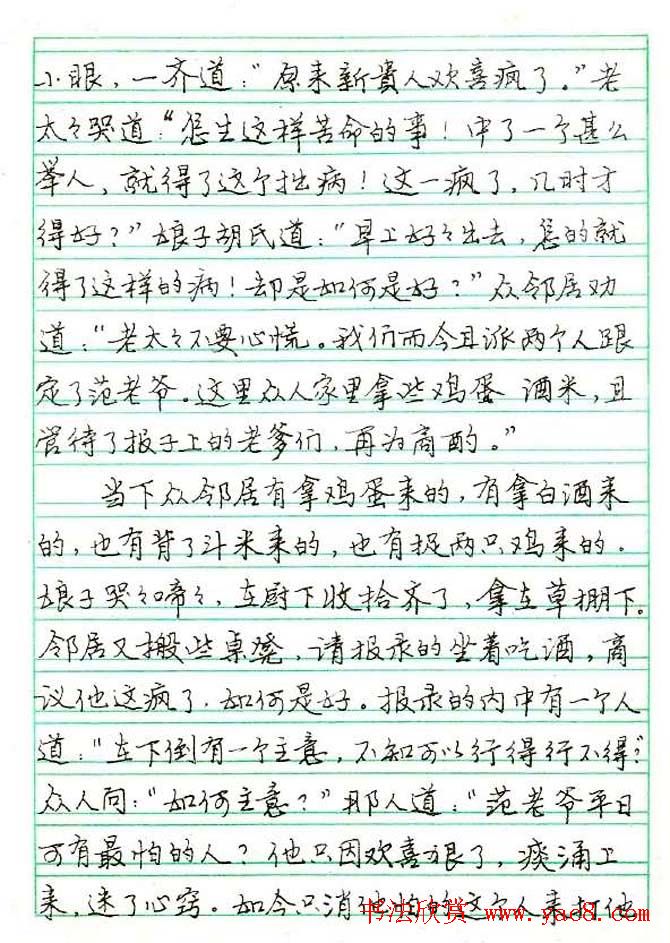 小眼，一齐道：“原来新貴人欢喜疯了。”老
太々哭道：“怎生这样苦命的事！中了一个甚么
举人，就得了这个拙病！这一疯了，几时才
得好？”娘子胡氏道：“早上好々出去，怎的就
得了这样的病！却是如何是好？”众邻居劝
道：“老太々不要心慌。我们而今且派两个人跟
定了范老爷。这里众人家里拿些鸡蛋 酒米，且
管待了报子上的老爹们，再为商酌。”
当下众邻居有拿鸡蛋来的，有拿白酒来
的，也有背了斗米来的，也有捉两只鸡来的．
娘子哭々啼々，在厨下收拾齐了，拿在草棚下。
邻居又搬些桌凳，请报录的坐着吃酒，商
议他这疯了．如何是好。报录的内中有一个人
道：“在下倒有一个主意，不知可以行得行不得？”
众人问：“如何主意？”那人道：“范老爷平日
可有最怕的人？他只因欢喜狠了，痰涌上
来，迷了心窍。如今只消他怕的这个人来打他
书法欣赏 www.yac8.com